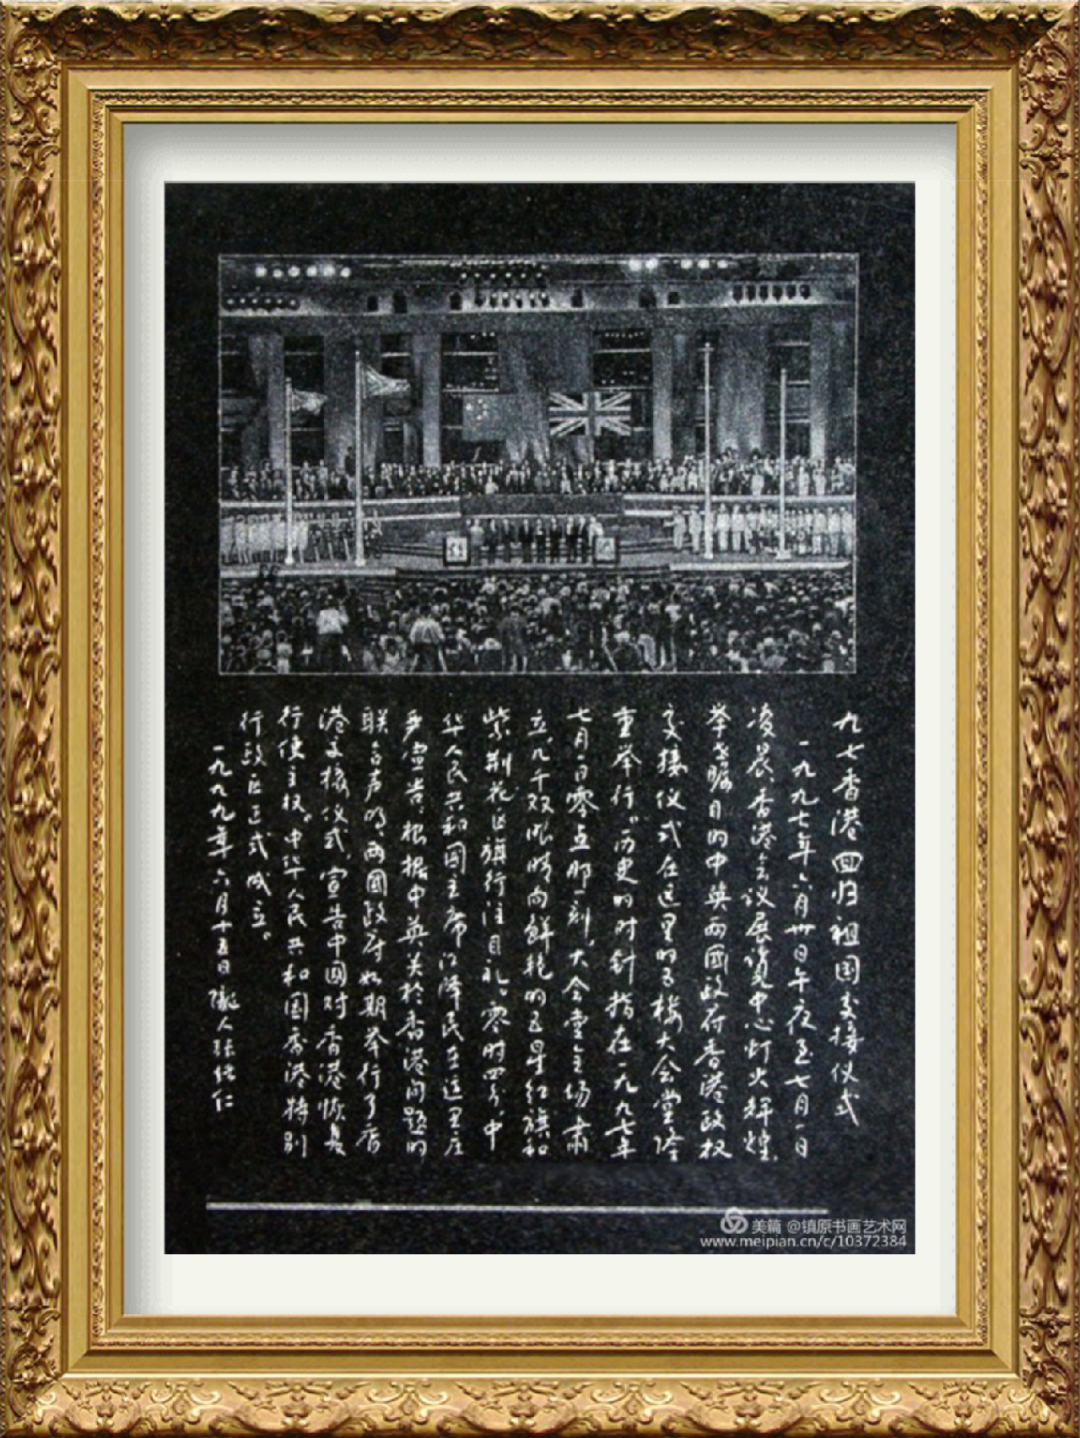 九七香港回归祖国交接仪式
一九九七年六月卅日午夜至七月一日
凌晨,香港会议展览中心灯火辉煌,
举世瞩目的中英两國政府香港政权
交接仪式在这里的五楼大会堂隆
重举行。历史的时针指在一九九七年
七月一日零点那一刻,大会堂全场肃
立,几千双眼睛向鲜艳的五星红旗和
紫荆花区旗行注目礼。零时四分,中
华人民共和國主席江泽民在这里庄
严宣告:根据中英关於香港问题的
联合声明,两國政府如期举行了香
港交接仪式,宣告中國对香港恢复
行使主权。中华人民共和国香港特别
行政区正式成立。
一九九九年六月十五日 陇人张继仁
美篇 @镇原书画艺术网
www.meipian.cn/c/10372384